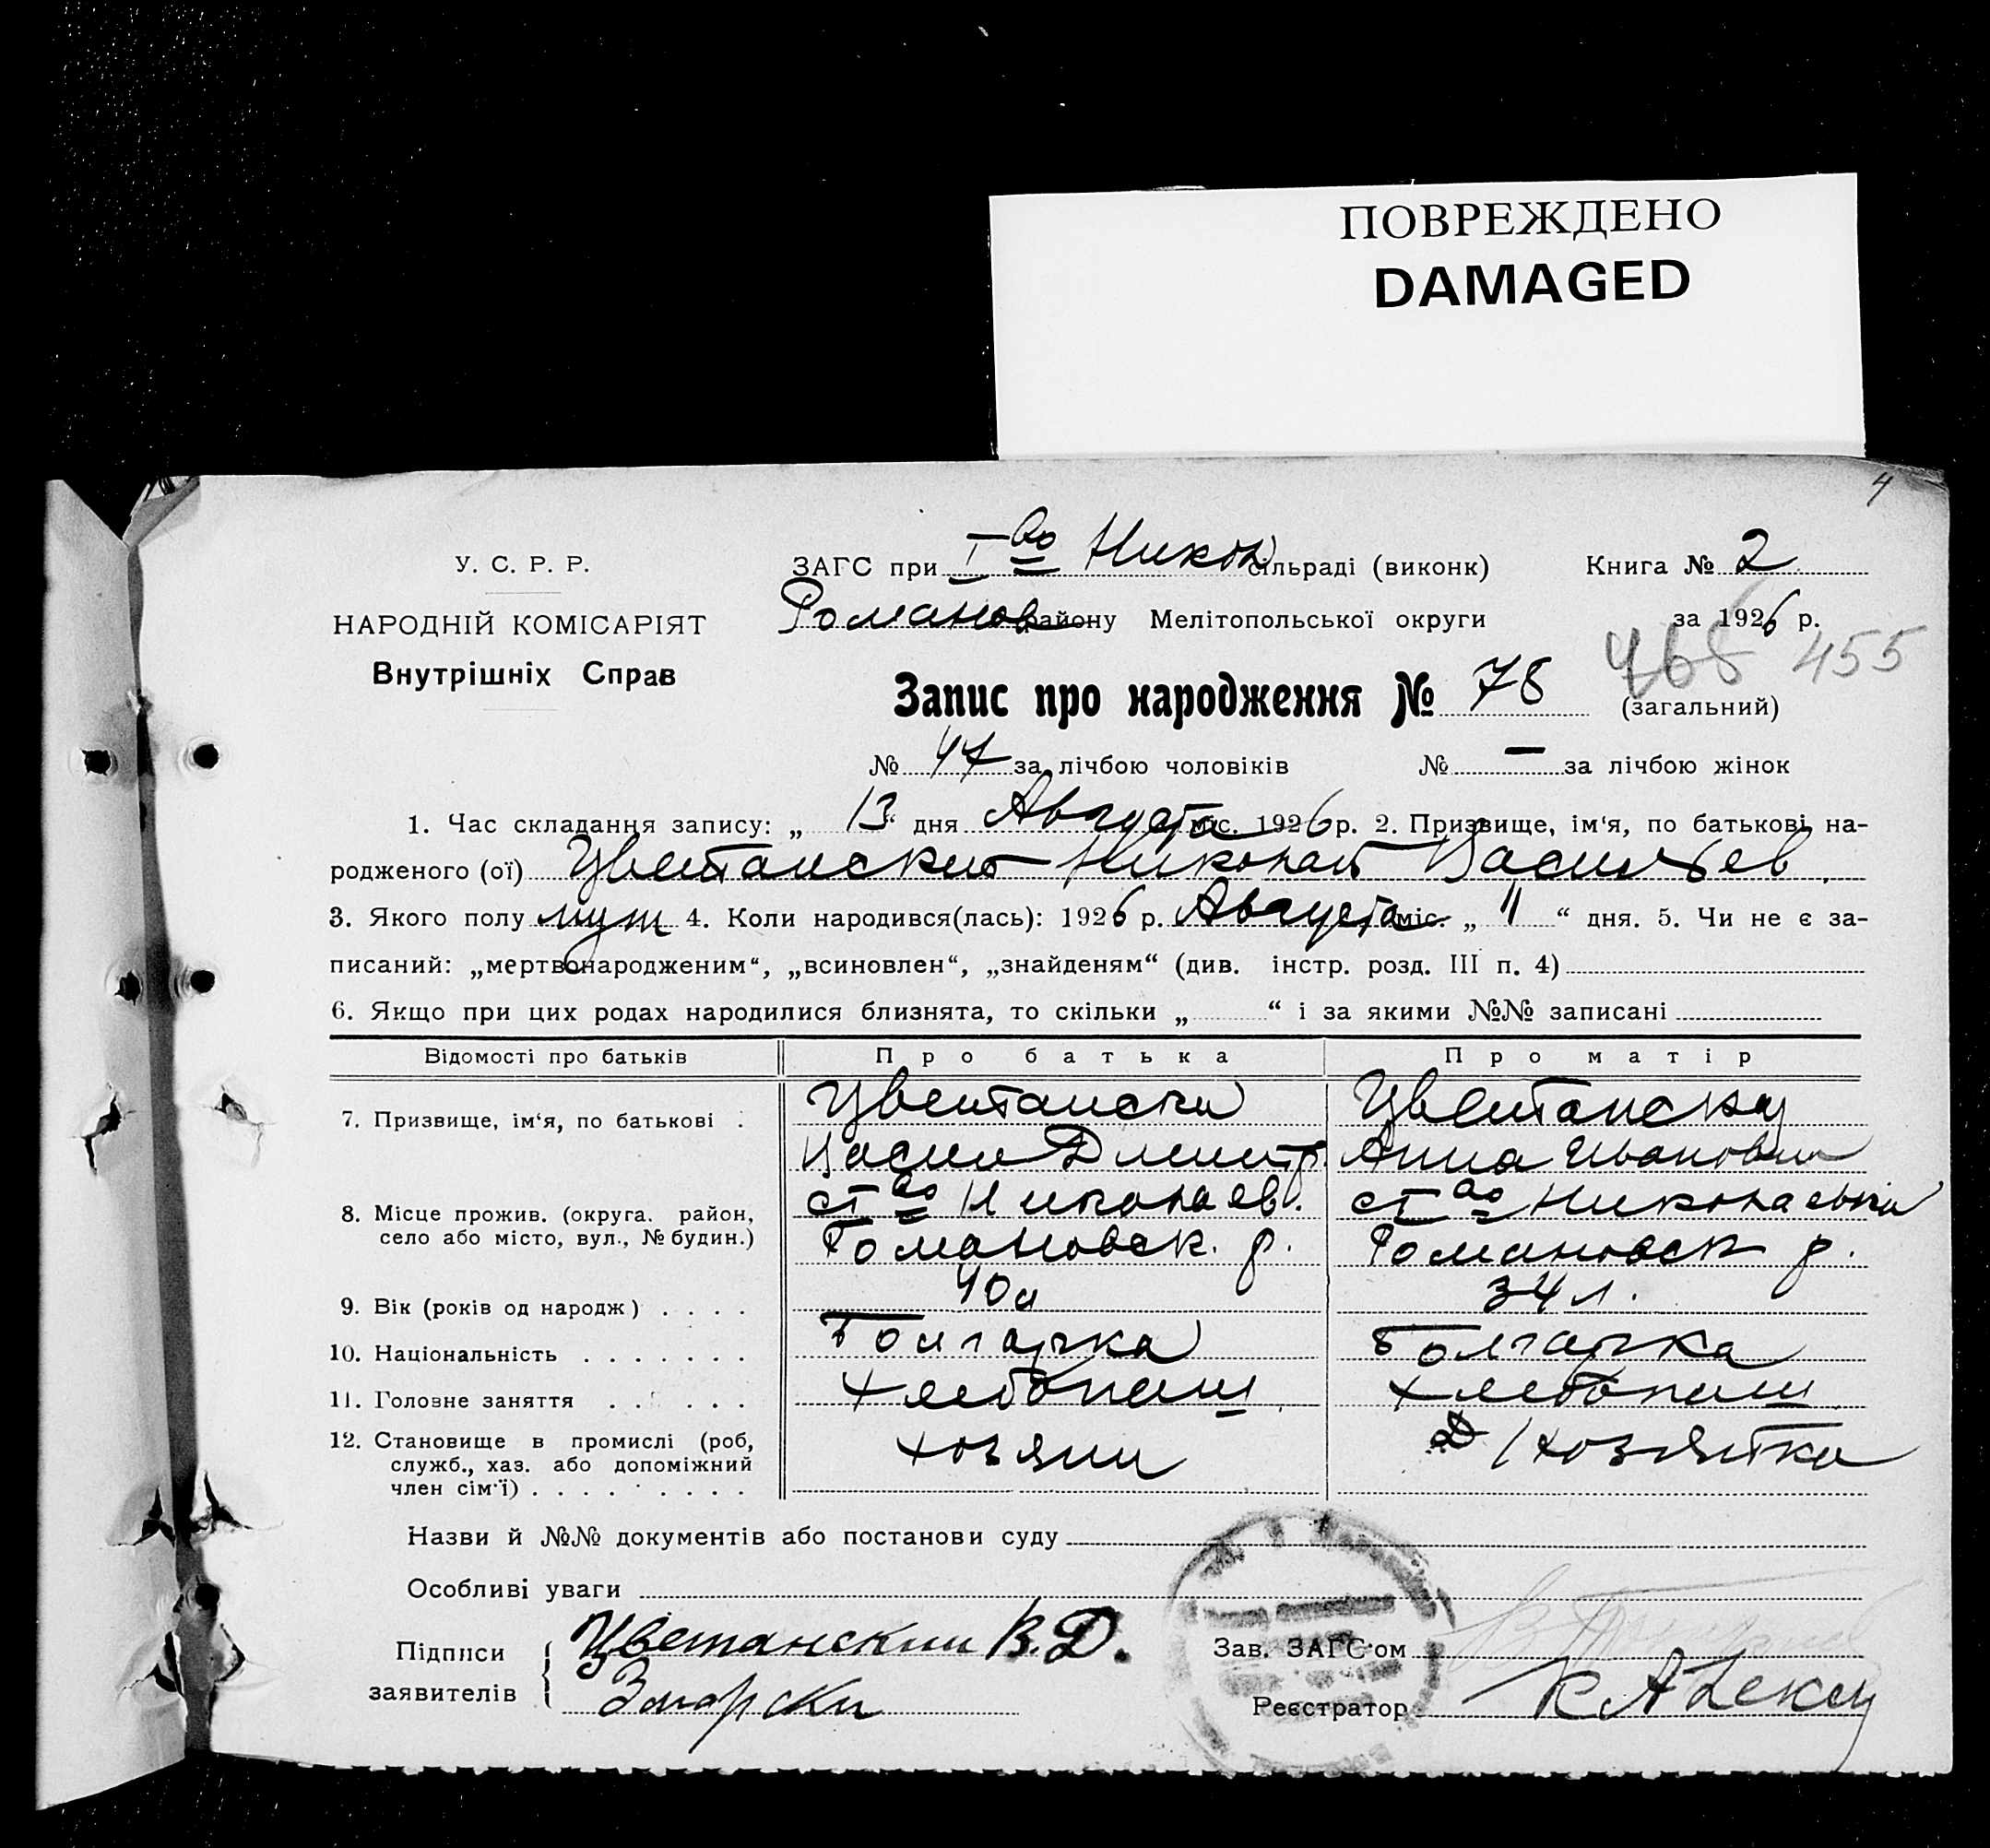 ПОВРЕЖДЕНО
DAMAGED
4
У. С. Р. Р.
НАРОДНІЙ КОМІСАРІЯТ
Внутрішніх Справ
ЗАГС при І во Никол сільраді (виконк) Книга № 2
Романов району Мелітопольської округи за 1926 р.
455
Запис про народження № 78 (загальний)
№ 47 за лічбою чоловіків № — за лічбою жінок
1. Час складання запису: „ 13 “ дня Августа міс. 1926 р. 2. Призвище, ім‘я, по батькові на-
родженого (ої) Цветанский Николай Васильев
3. Якого полу муж 4. Коли народився(лась): 1926 р. Августа міс. „ 11 “ дня. 5. Чи не є за-
писаний: „мертвонародженим“, „всиновлен“, „знайденям“ (див. інстр. розд. III п. 4)
6. Якщо при цих родах народилися близнята, то скільки „ “ і за якими №№ записані
Відомості про батьків Про батька Про матір
7. Призвище, ім‘я, по батькові . Цветански Цветанску
Васил Дмитр. Анна Ивановна
8. Місце прожив. (округа. район, ст во Николаев.
село або місто, вул., № будин.) Романовск. р. Романовск р.
9. Вік (років од народж) . . . . 40 л 34 л.
10. Національність . . . . . . . Болгарка Болгарка
11. Головне заняття . . . . . Хлебопаш Хлебопаш
12. Становище в промислі (роб, хозяин Д/хозяйка
служб., хаз. або допоміжний
член сім‘ї) . . . . . . . . .
Назви й №№ документів або постанови суду
Особливі уваги
Підписи Цветанский В. Д. Зав. ЗАГС‘ом
заявителів Реєстратор